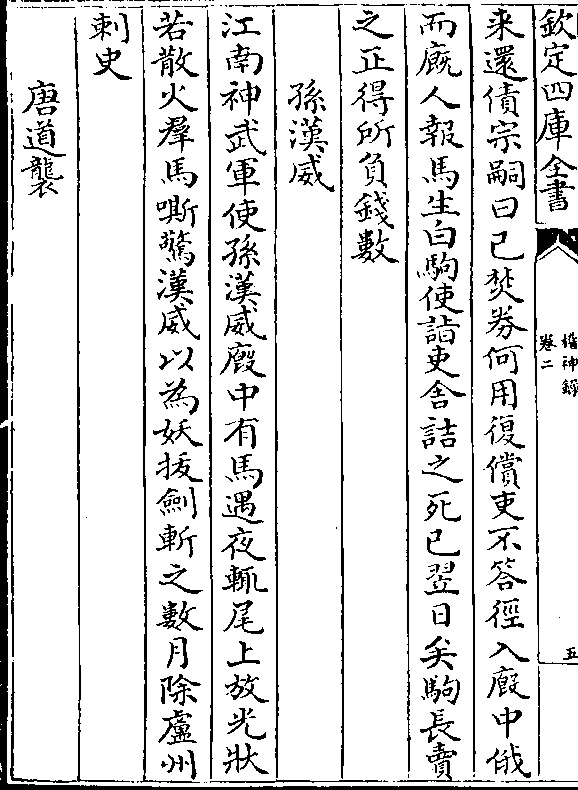 欽定四庫全書
稽神録
卷二
五
来還債宗嗣曰已焚券何用復償吏不答徑入廐中俄
而廐人報馬生白駒使詣吏舍詰之死已翌日矣駒長賣
之正得所負錢數
孫漢威
江南神武軍使孫漢威廐中有馬遇夜輒尾上放光狀
若散火羣馬嘶驚漢威以為妖拔劍斬之數月除廬州
刺史
唐道襲